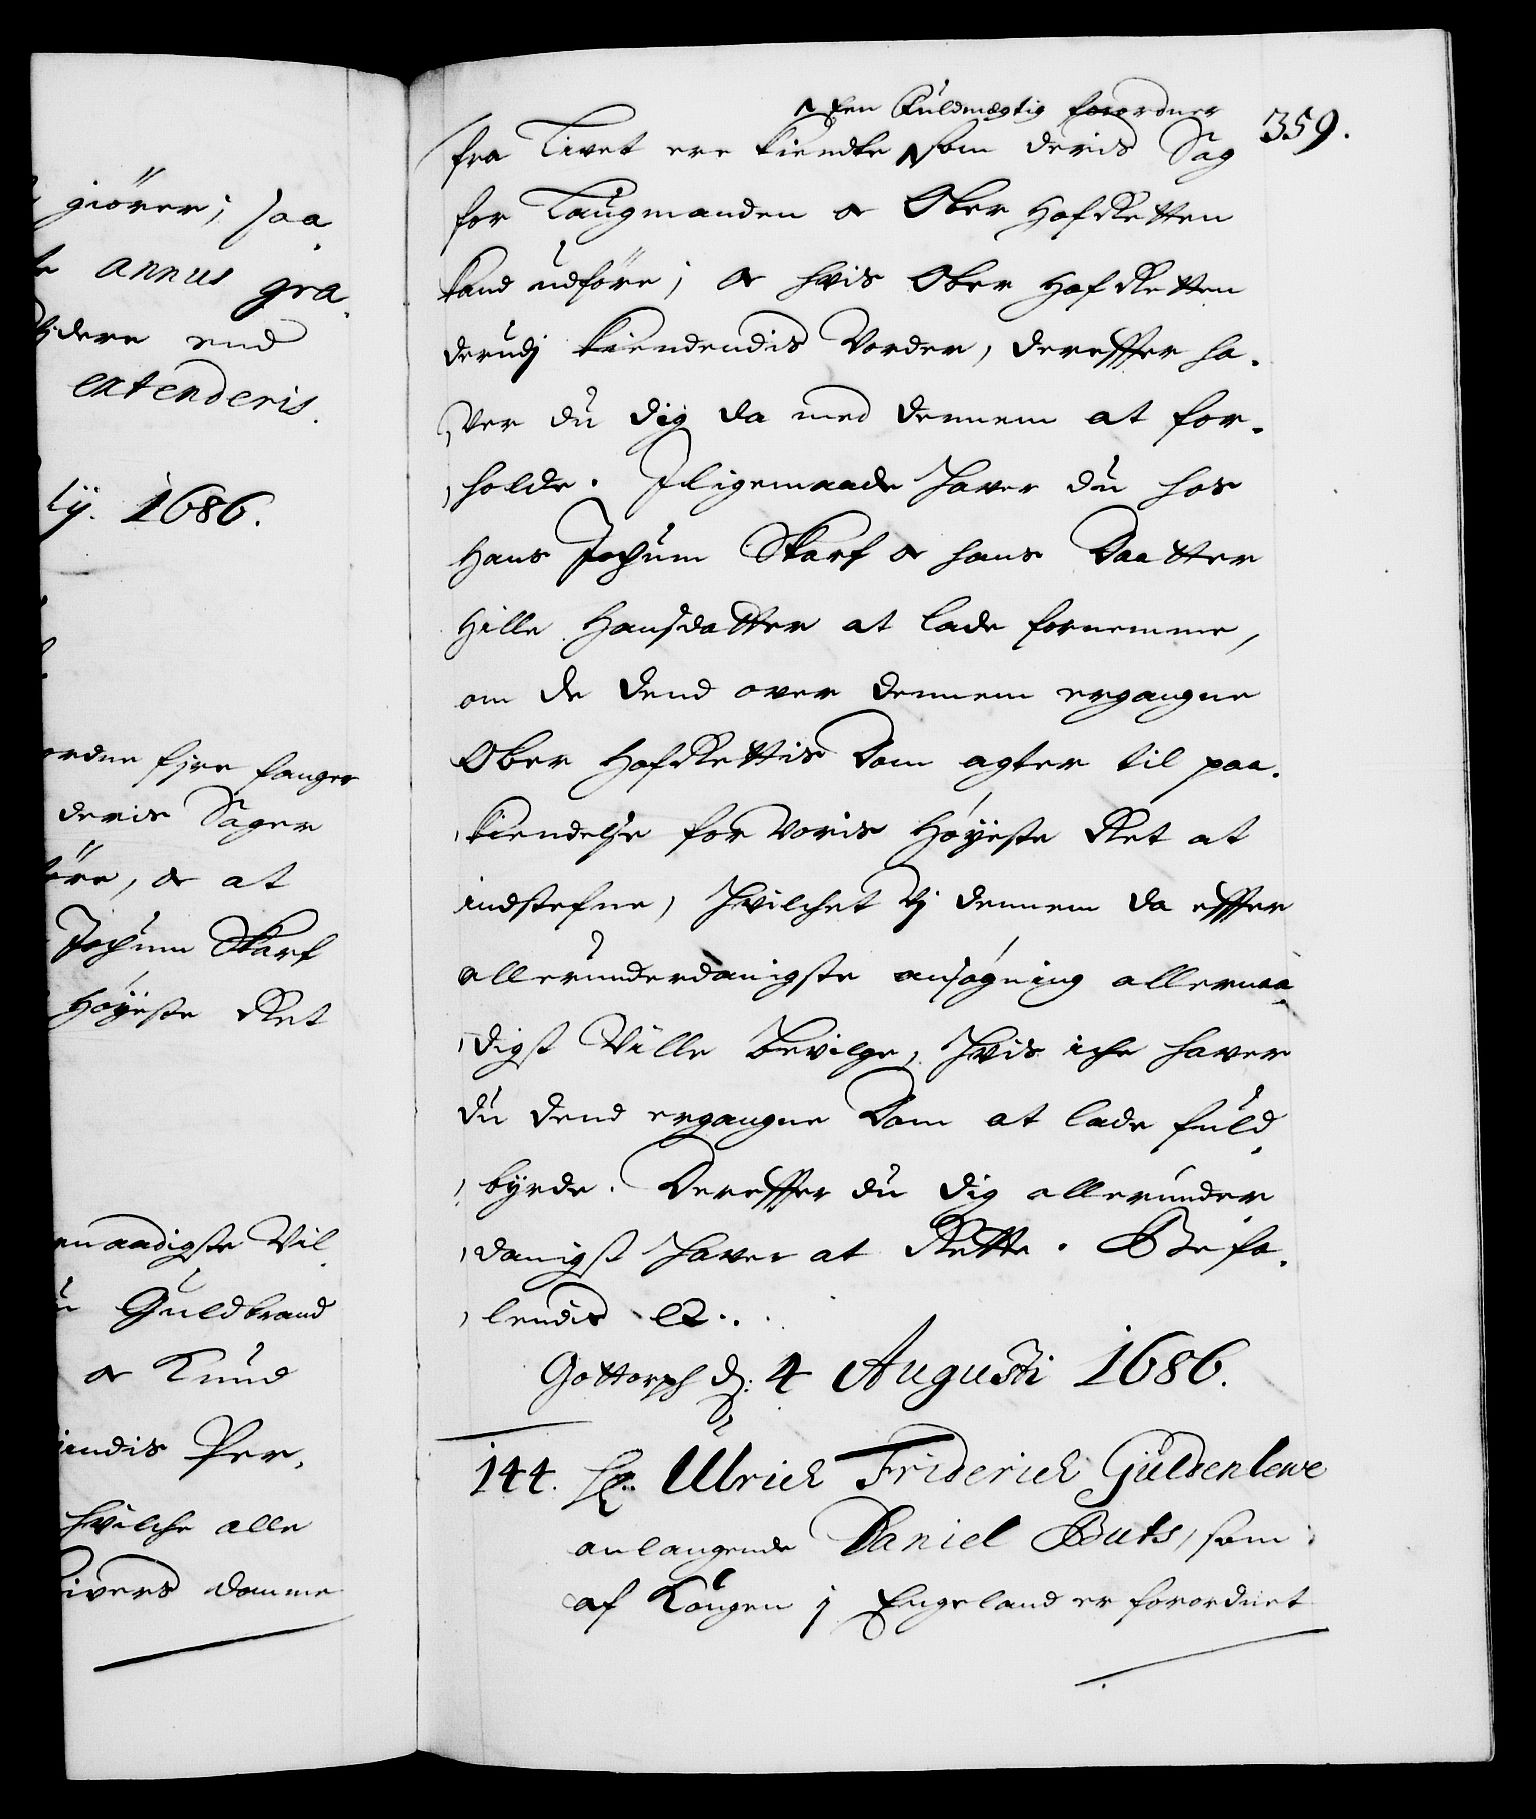 giörer; saa
annus gra-
ydere end
extenderis.
lij. 1686.
ordne fire fanger
deris Sager
före, oc at
Jochum Skarf
Höyeste Ret
naadigste Vil-
Guldbrand
oc Knud
Per-
hvilche alle
livers domme
359.
^ Een Fuldmegtig forordner
fra Livet ere kiendte ^ som deris Sag
for Laugmanden oc Ober HofRetten
kand udföre; oc hvis Ober HofRetten
derudj kiendendis Vorder, derefter ha-
ver du dig da med dennem at for-
holde. Jligemaade haver du hos
Hans Jochum Skarf oc hans Daatter
Hille Hansdatter at lade fornemme,
om de dend over dennem ergangne
Ober HofRettis Dom agter til paa-
kiendelse for voris Höyeste Ret at
indstefne, hvilchet Vj dennem da efter
allerunderdanigste ansögning allernaa-
digst Ville bevilge, hvis iche haver
du dend ergangne Dom at lade fuld-
byrde. Derefter du dig allerunder-
danigst haver at Rette. Befa-
lendis etc.
Gottorph d: 4 Augusti 1686.
144. Hr. Ulrich Friderich Güldenlewe
anlangende Daniel Buts, som
af Kongen j Engeland er forordnet